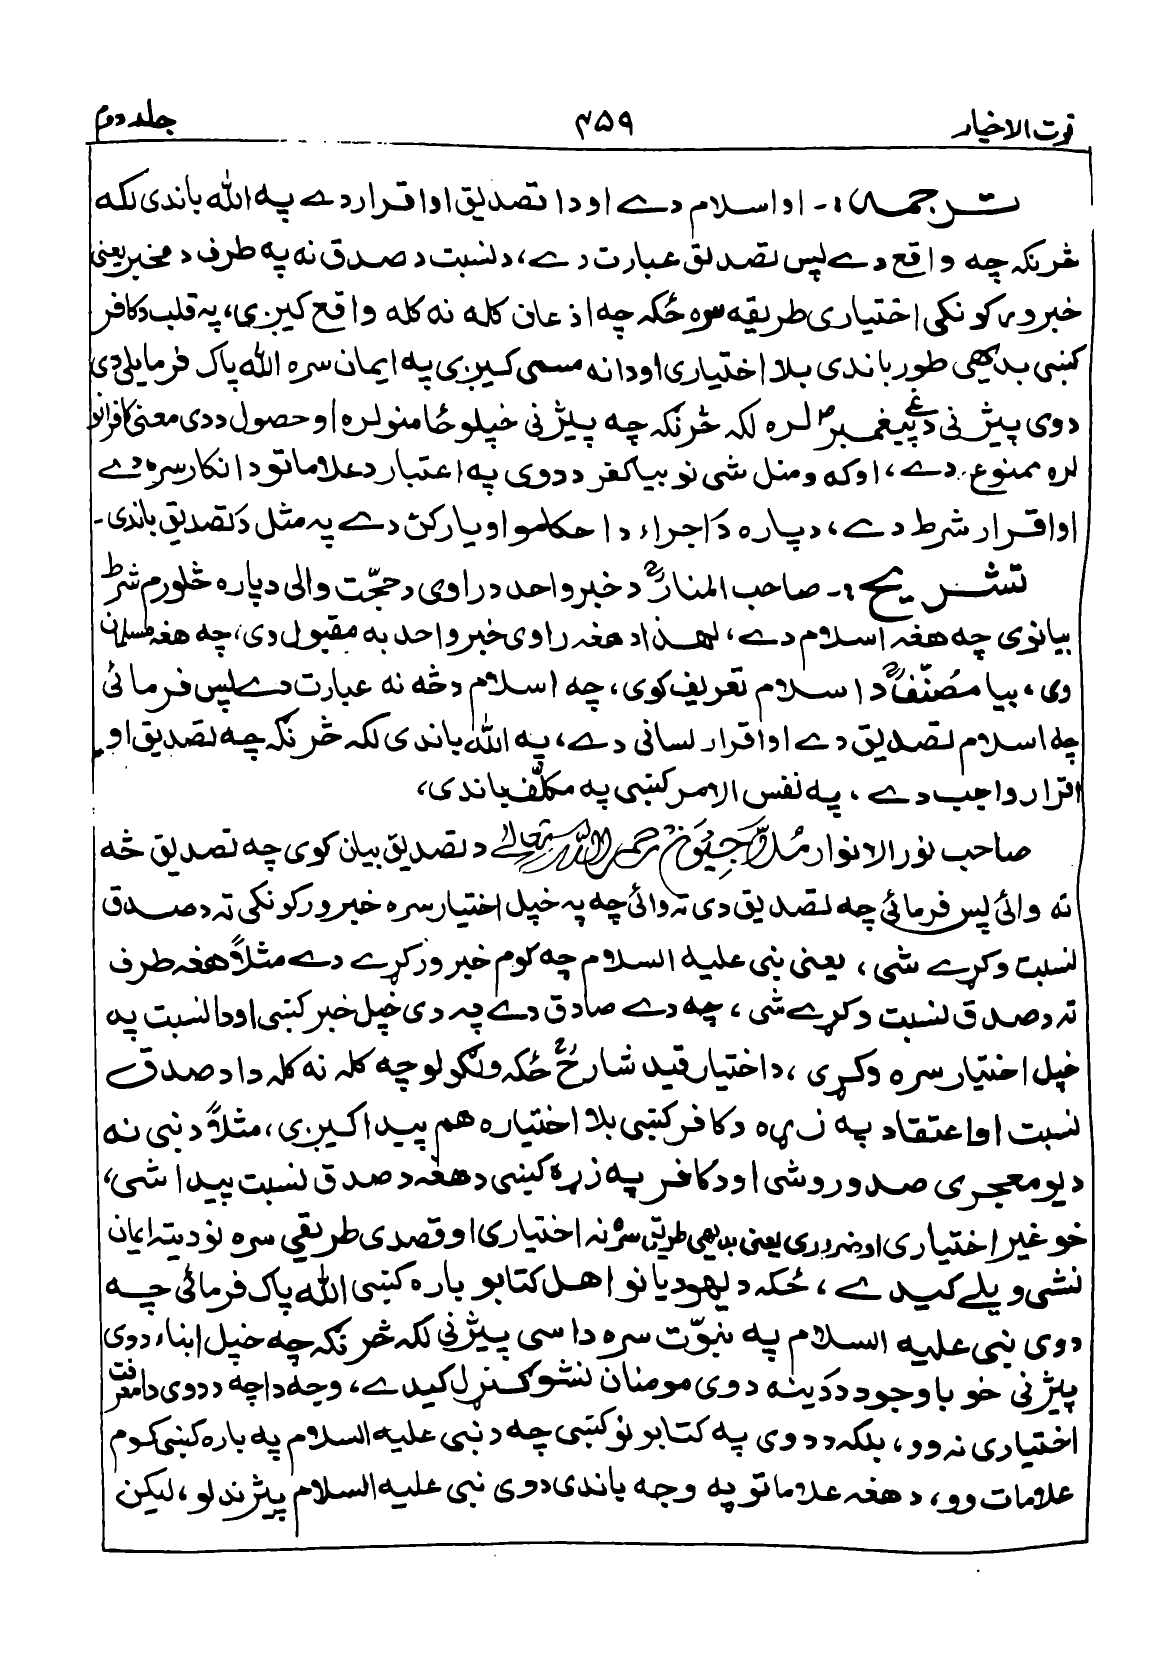 قوت الاخیار ۴۵۹ جلد دوم
ترجمہ:۔ او اسلام دے او دا تصدیق او اقرار دے په الله باندی لکه
څرنګه چه واقع دے پس تصدیق عبارت دے، د نسبت د صدق نه په طرف د مخبر یعنی
خبر ورکونکی اختیاری طریقه سره ځکه چه اذعان کله نه کله واقع کیږی، په قلب د کافر
کښی بدیهی طور باندی بلا اختیاری او دا نه مسمی کیږی په ایمان سره الله پاک فرمایلی دی
دوی پیژنی دغې پیغمبرؐ لره لکه څرنګه چه پیژنی خپلو ځامنو لره او حصول ددی معنی کافرانو
لره ممنوع دے، او که ومنل شی نو بیا کفر ددوی په اعتبار د علاماتو د انکار سره دے
او اقرار شرط دے، دپاره د اجراء د احکامو او یا رکن دے په مثل د تصدیق باندی۔
تشریح:۔ صاحب المنارؒ د خبر واحد د راوی د حجّت والی دپاره څلورم شرط
بیانوی چه هغه اسلام دے، لهذا د هغه راوی خبر واحد به مقبول وی، چه هغه مسلمان
وی، بیا مصنّفؒ د اسلام تعریف کوی، چه اسلام د څه نه عبارت دے پس فرمائی
چه اسلام تصدیق دے او اقرار لسانی دے، په الله باندی لکه څرنګه چه تصدیق او
اقرار واجب دے، په نفس الامر کښی په مکلّف باندی،
صاحب نور الانوار مُلّا جِیُونؒ رحمہ اللہ تعالیٰ د تصدیق بیان کوی چه تصدیق څه
ته وائی پس فرمائی چه تصدیق دی ته وائی چه په خپل اختیار سره خبر ورکونکی ته د صدق
نسبت وکړے شی، یعنی نبی علیه السلام چه کوم خبر ورکړے دے مثلاً هغه طرف
ته د صدق نسبت وکړے شی، چه دے صادق دے په دی خپل خبر کښی او دا نسبت په
خپل اختیار سره وکړی، د اختیار قید شارحؒ ځکه ولګولو چه کله نه کله دا د صدق
نسبت او اعتقاد په زړه د کافر کښی بلا اختیاره هم پیدا کیږی، مثلاً د نبی نه
د یو معجزی صدور وشی او د کافر په زړه کښی د هغه د صدق نسبت پیدا شی،
خو غیر اختیاری او ضروری یعنی بدیهی طریق سره نه اختیاری او قصدی طریقي سره نو دیته ایمان
نشی ویلے کیدے، ځکه د یهودیانو اهل کتابو باره کښی الله پاک فرمائی چه
دوی نبی علیه السلام په نبوّت سره داسی پیژنی لکه څرنګه چه خپل ابناء دوی
پیژنی خو باوجود ددینه دوی مومنان نشو ګنړل کیدے، وجه دا چه ددوی دا معرفت
اختیاری نه وو، بلکه ددوی په کتابونو کښی چه د نبی علیه السلام په باره کښی کوم
علامات وو، د هغه علاماتو په وجه باندی دوی نبی علیه السلام پیژندلو، لیکن